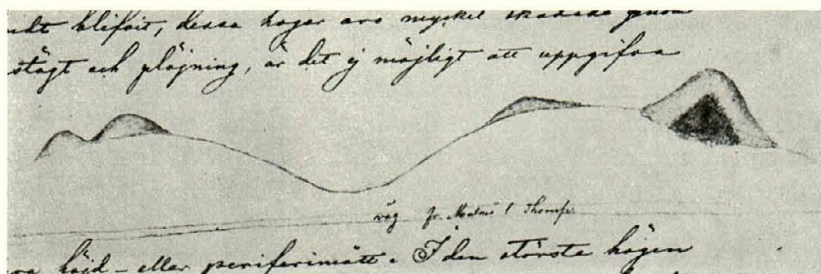 blifvit, dessa högar äro mycket skadade genom
och plöjning, är det ej möjligt att uppgifva
väg fr. Malmö t
höjd – eller periferimått. I den största högen